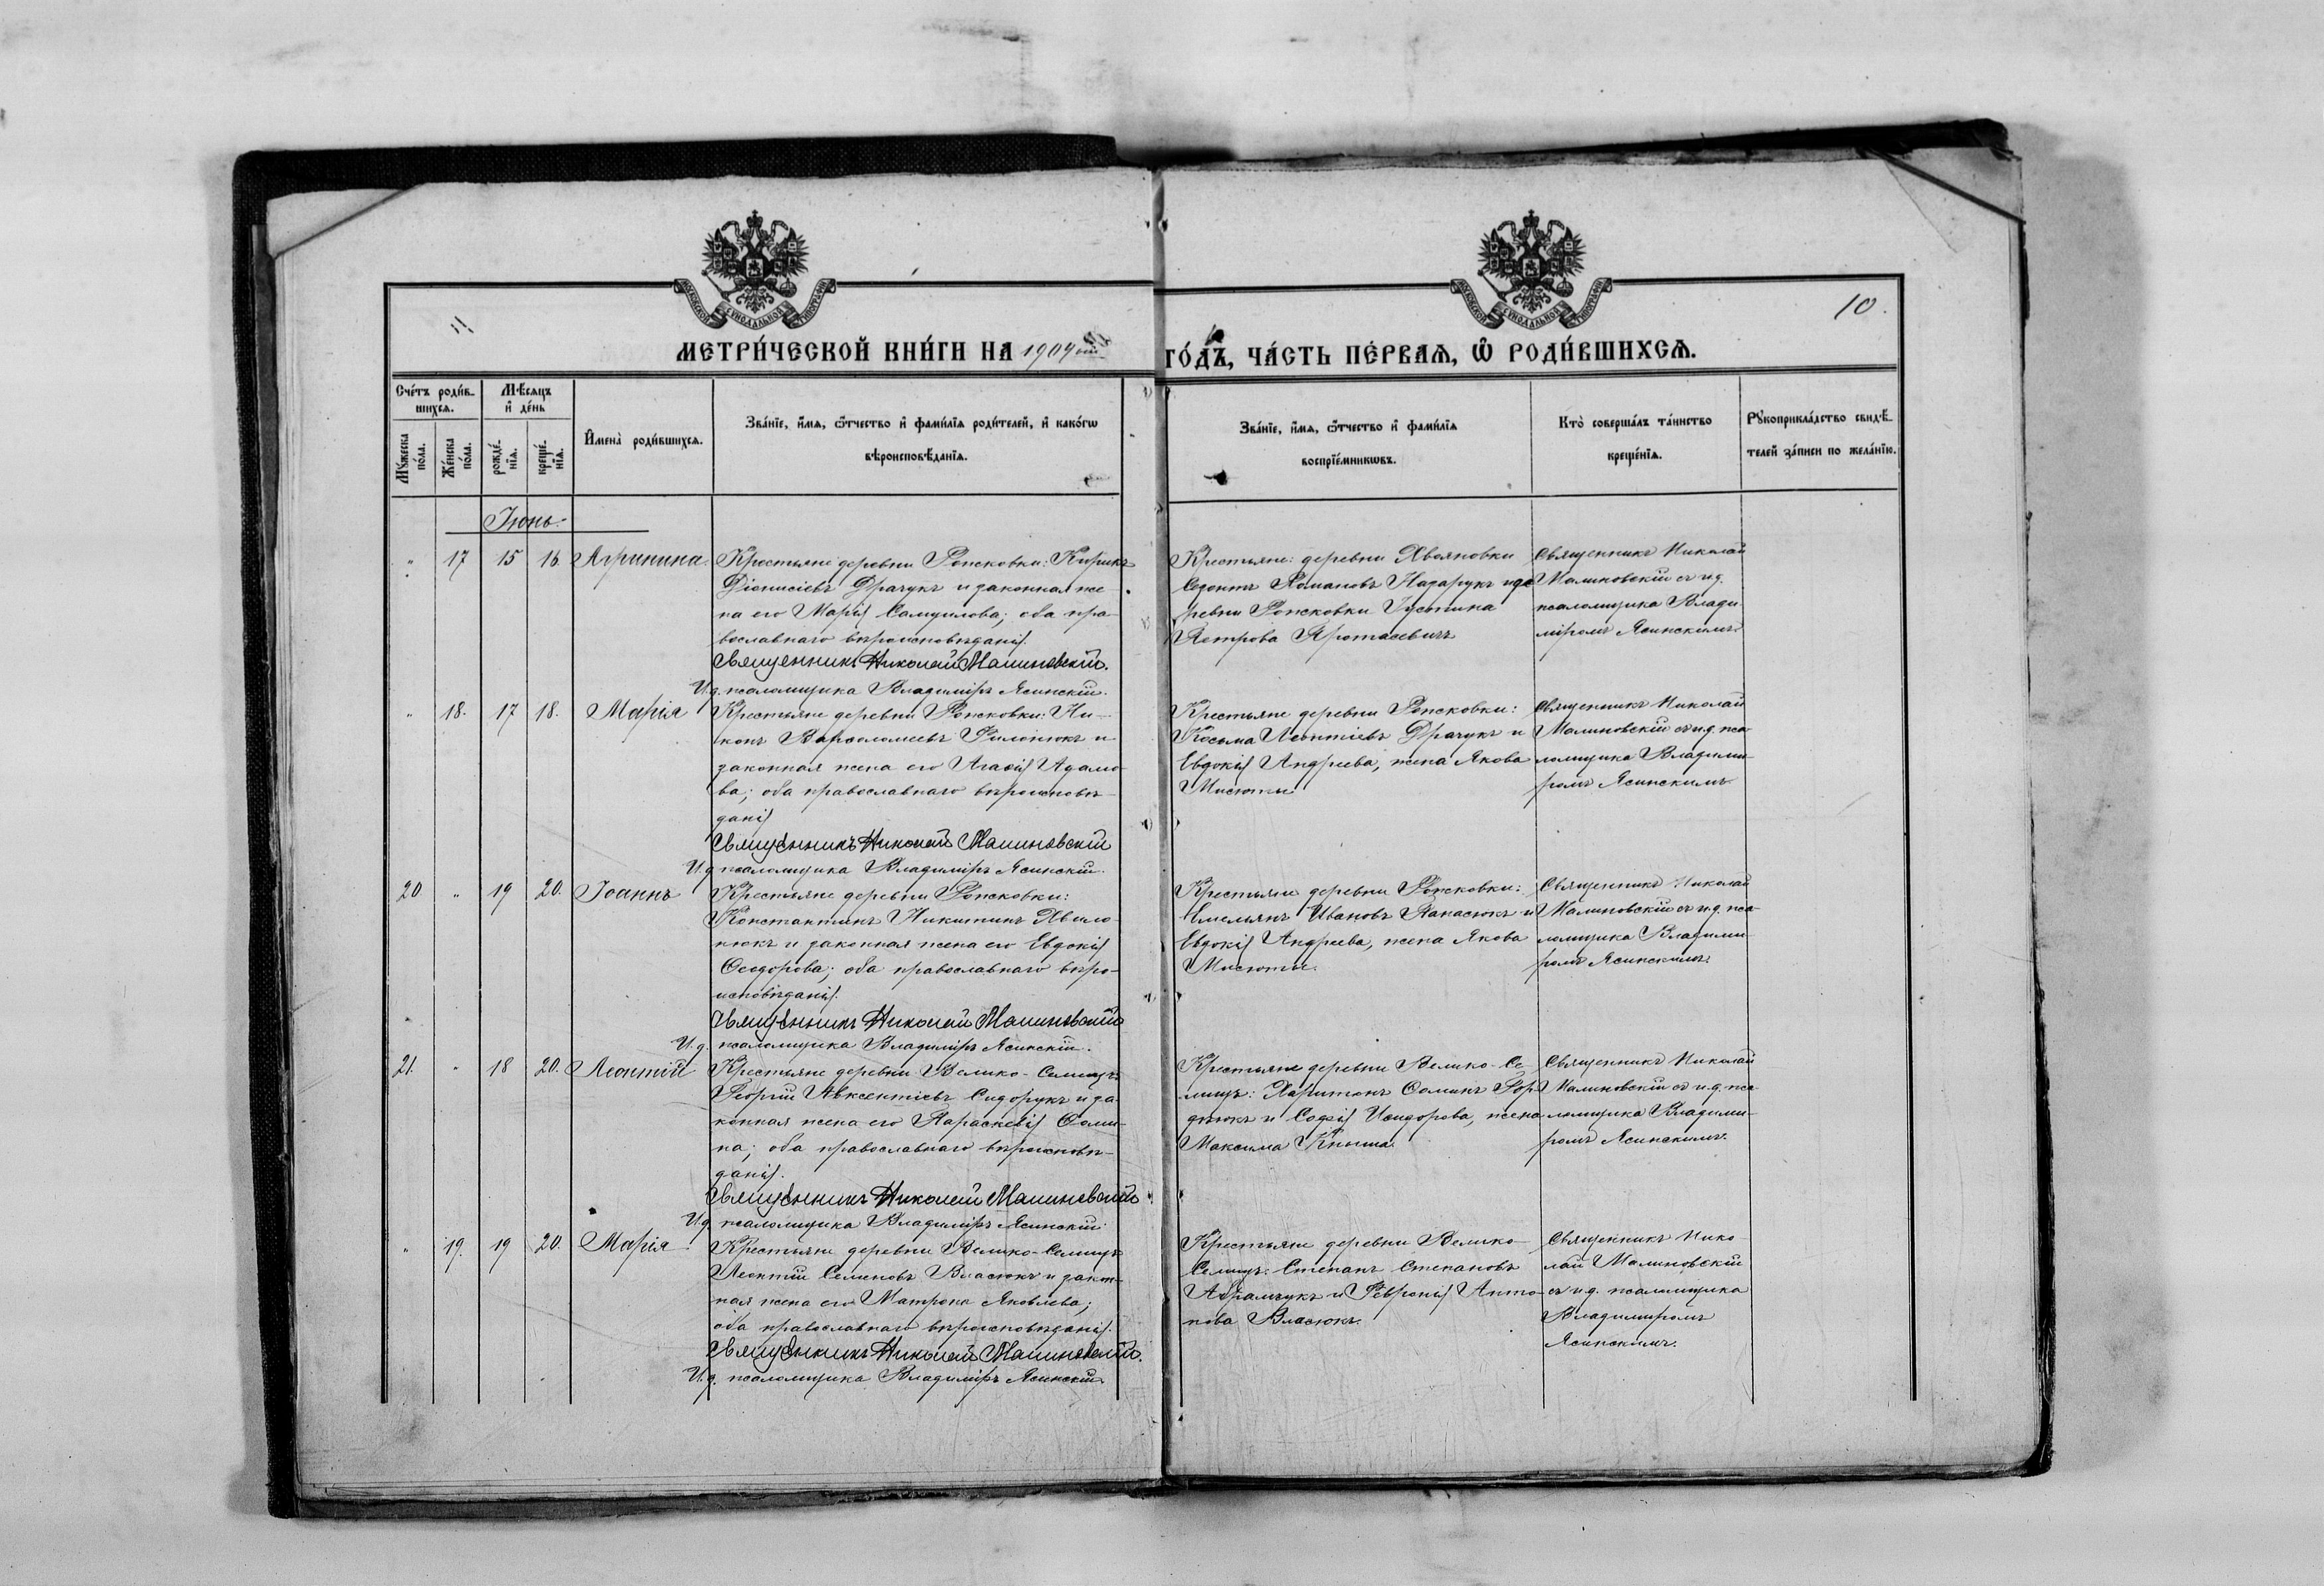 МОСКОВСКОЙ СѴНОДАЛЬНОЙ ТИПОГРАФІИ
МОСКОВСКОЙ СѴНОДАЛЬНОЙ ТИПОГРАФІИ
10.
МЕТРИ́ЧЕСКОЙ КНИ́ГИ НА 1904 ый
ГО́ДЪ, ЧА́СТЬ ПЕ́РВАѦ, Ѡ҆ РОДИ́ВШИХСѦ.
Сче́тъ роди́в-
шихсѧ.
Мꙋ́жеска по́ла.
Же́нска по́ла.
Мѣ́сѧцъ
и҆ де́нь
рожде́-
нїѧ.
креще́-
нїѧ.
И҆мена̀ роди́вшихсѧ.
Зва́нїе, и҆́мѧ, ѻ҆́тчество и҆ фами́лїѧ роди́телей, и҆ како́гѡ
вѣроисповѣ́данїѧ.
Зва́нїе, и҆́мѧ, ѻ҆́тчество и҆ фами́лїѧ
воспрїе́мникѡвъ.
Кто̀ соверша́лъ та́инство
креще́нїѧ.
Рꙋкоприкла́дство свидѣ́-
телей за́писи по жела́нїю.
Іюнь.
" 17 15 16 Агрипина.
Крестьяне деревни Ропсковки: Кирикъ
Діонисіевъ Драчукъ и законная же
на его Марія Самуилова; оба пра
вославнаго вѣроисповѣданія.
Священникъ Николай Малиновскій.
И.д. псаломщика Владиміръ Ясинскій.
Крестьяне: деревни Хвояновки
Романовъ Назарукъ и де
ревни Ропсковки Іустина
Петрова Протасевичъ
Священникъ Николай
Малиновскій съ и.д.
псаломщика Влади
міромъ Ясинскимъ.
" 18. 17 18. Марія
Крестьяне деревни Ропсковки: Ни-
конъ Варѳоломеевъ Филонюкъ и
законная жена его Агаѳія Адамо
ва; оба православнаго вѣроисповѣ-
данія
Священникъ Николай Малиновскій
И.д. псаломщика Владиміръ Ясинскій.
Крестьяне деревни Ропсковки:
Косьма Леонтіевъ Драчукъ и
Евдокія Андреева, жена Якова
Мисюты
Священникъ Николай
Малиновскій съ и.д. пса-
ломщика Владими-
ромъ Ясинскимъ.
20 " 19 20. Іоаннъ
Крестьяне деревни Ропсковки:
Константинъ Никитинъ Хвило-
нюкъ и законная жена его Евдокія
Ѳеодорова; оба православнаго вѣро-
исповѣданія.
Священникъ Николай Малиновскій
И.д. псаломщика Владиміръ Ясинскій.
Крестьяне деревни Ропсковки:
Емельянъ Ивановъ Панасюкъ и
Евдокія Андреева, жена Якова
Мисюты.
Священникъ Николай
Малиновскій съ и.д. пса-
ломщика Владими-
ромъ Ясинскимъ.
21. " 18 20. Леонтій
Крестьяне деревни Велико-Селищъ:
Георгій Авксентіевъ Сидорукъ и за
конная жена его Параскевія Ѳоми-
на; оба православнаго вѣроисповѣ-
данія.
Священникъ Николай Малиновскій
И.д. псаломщика Владиміръ Ясинскій
Крестьяне деревни Велико-Се-
лищъ: Харитонъ Ѳоминъ Гор-
дѣюкъ и Софія Исидорова, жена
Максима Кныша.
Священникъ Николай
Малиновскій съ и.д. пса
ломщика Владими-
ромъ Ясинскимъ.
" 19. 19 20. Марія
Крестьяне деревни Велико-Селищъ
Леонтій Семеновъ Власюкъ и закон-
ная жена его Матрона Яковлева;
оба православнаго вѣроисповѣданія.
Священникъ Николай Малиновскій.
И.д. псаломщика Владиміръ Ясинскій.
Крестьяне деревни Велико-
Селищъ: Степанъ Степановъ
Абрамчукъ и Февронія Анто-
нова Власюкъ.
Священникъ Нико-
лай Малиновскій
съ и.д. псаломщика
Владимиромъ
Ясинскимъ.